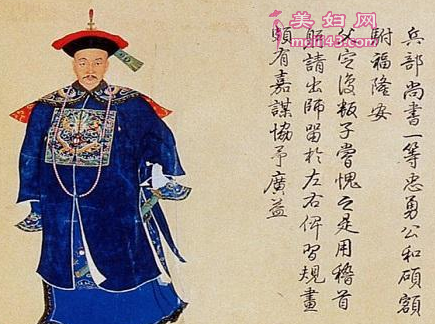 美妇网
meifu43.com
兵部尚書一等忠勇公和碩額
駙福隆安
父定後叛子嘗愧之是用稽首
賜請出師留於左右俾習規畫
頗有嘉謀協予廣益